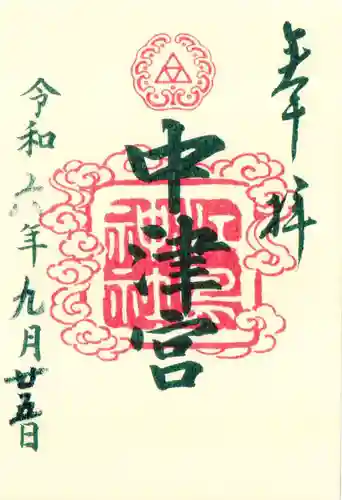 奉拝
中津宮
令和六年九月廿五日